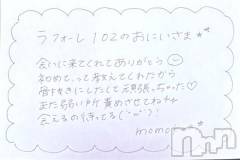 ラフォーレ102のおにいさま
会いに来てくれてありがとう
初めて。って教えてくれたから
度々きにしたくて頑張っちゃった♡
また弱い所責めさせてね
会えるの待ってる(
momo